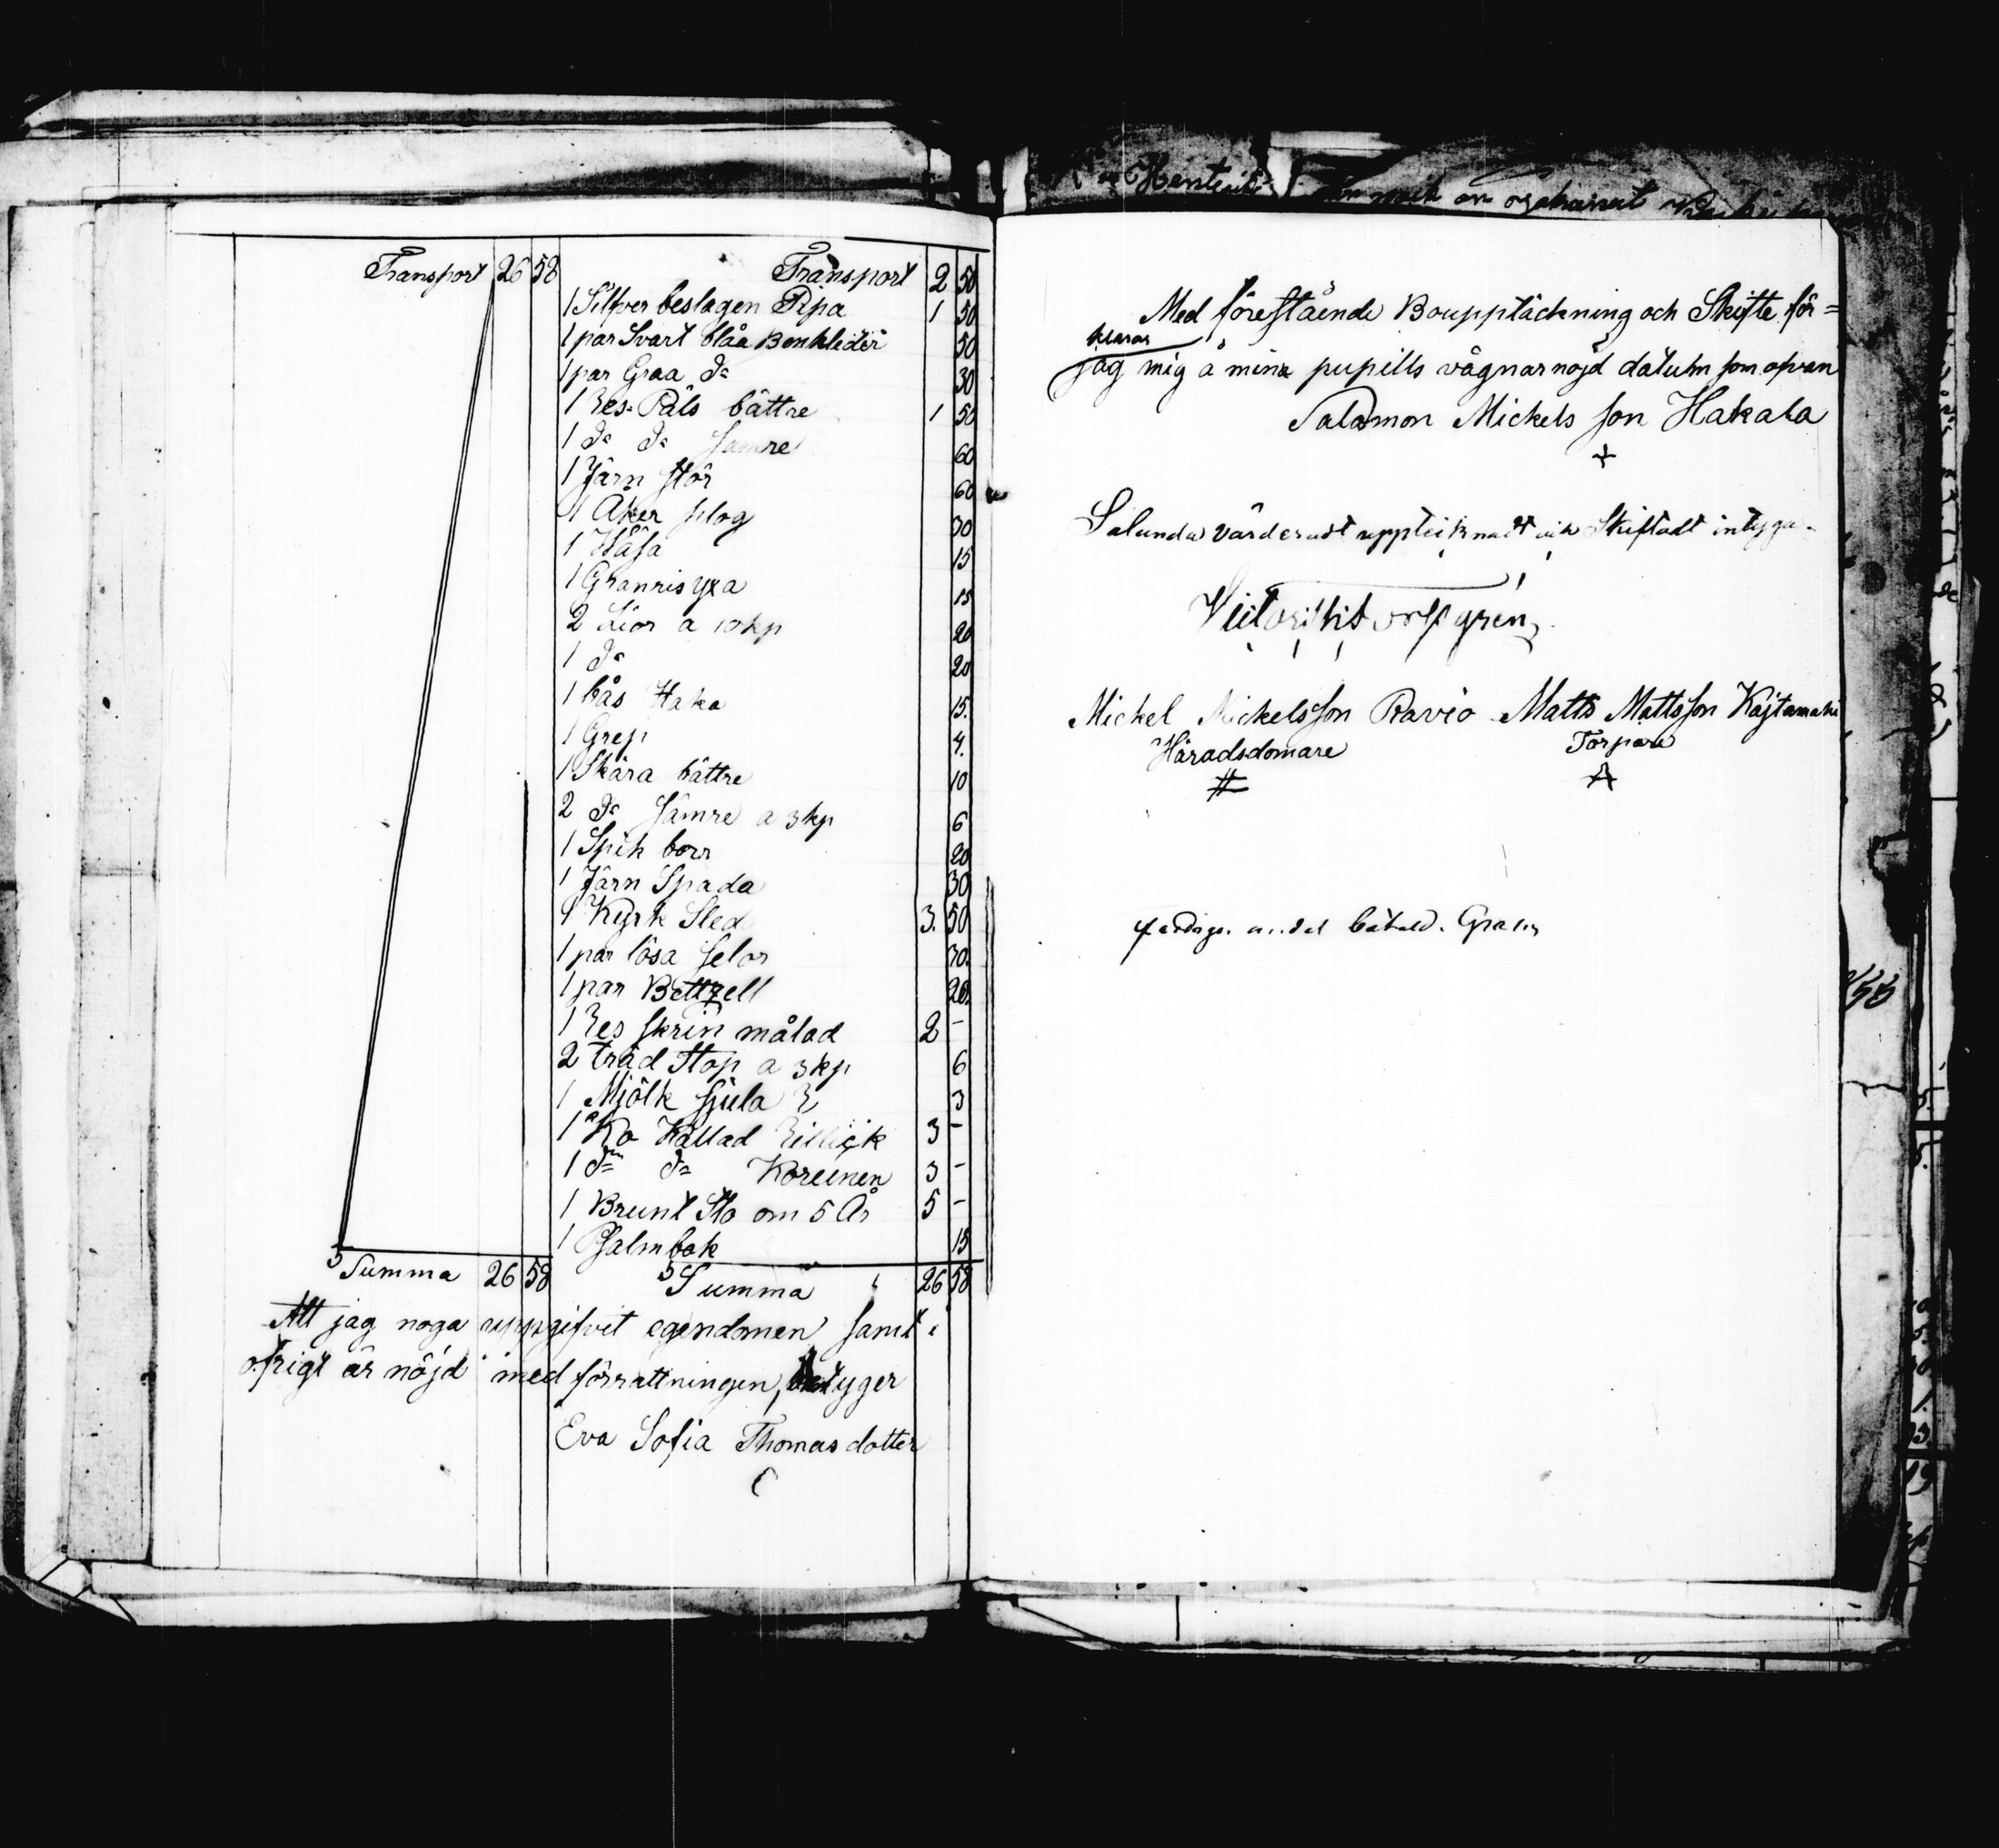 Transport 26 58
Transport 2 50
1 Silfver beslagen Pipa 1 50
1 par Svart blåa Benkleder 50
1 par Graa do 30
1 Res Päls bättre 1 50
1 do do sämre 60
1 Järn stör 60
1 Åker plog 30
1 15
1 Granris yxa 15
2 Lior a 10 kp 20
1 do 20
1 bås Haka 15.
1 Grep 4.
1 Skära bättre 10
2 do sämre a 3 kp 6
1 Spik borr 20
1 Järn Spada 30
1 Kyrk Sled 3. 50
1 par lösa selor 30.
1 par Bettzell 20.
1 Res skrin målad 2 -
2 träd Stop a 3 kp 6
1 Mjölk 3
1 Ko Kallad 3 -
1 dn do Koreinen 3 -
1 Brunt Sto om 5 År 5 -
1 Psalmbok 15
Summa 26 58
Summa 26 58
Att jag noga uppgifvit egendomen samt i
öfrigt är nöjd med förrattningen, betyger
Eva Sofia Thomasdotter
Med föreståendе Bouppläckning och Skifte för=
klarar
jag mig å mina pupills vägnar nöjd datum som ofvan
Salomon Mickels son Hakala
Salunda värderadt uppteiknadt och Skiftadt intyga.
Mickel Mickelsson Ravio Matts Mattsson Kajtamaki
Häradsdomare Torpare